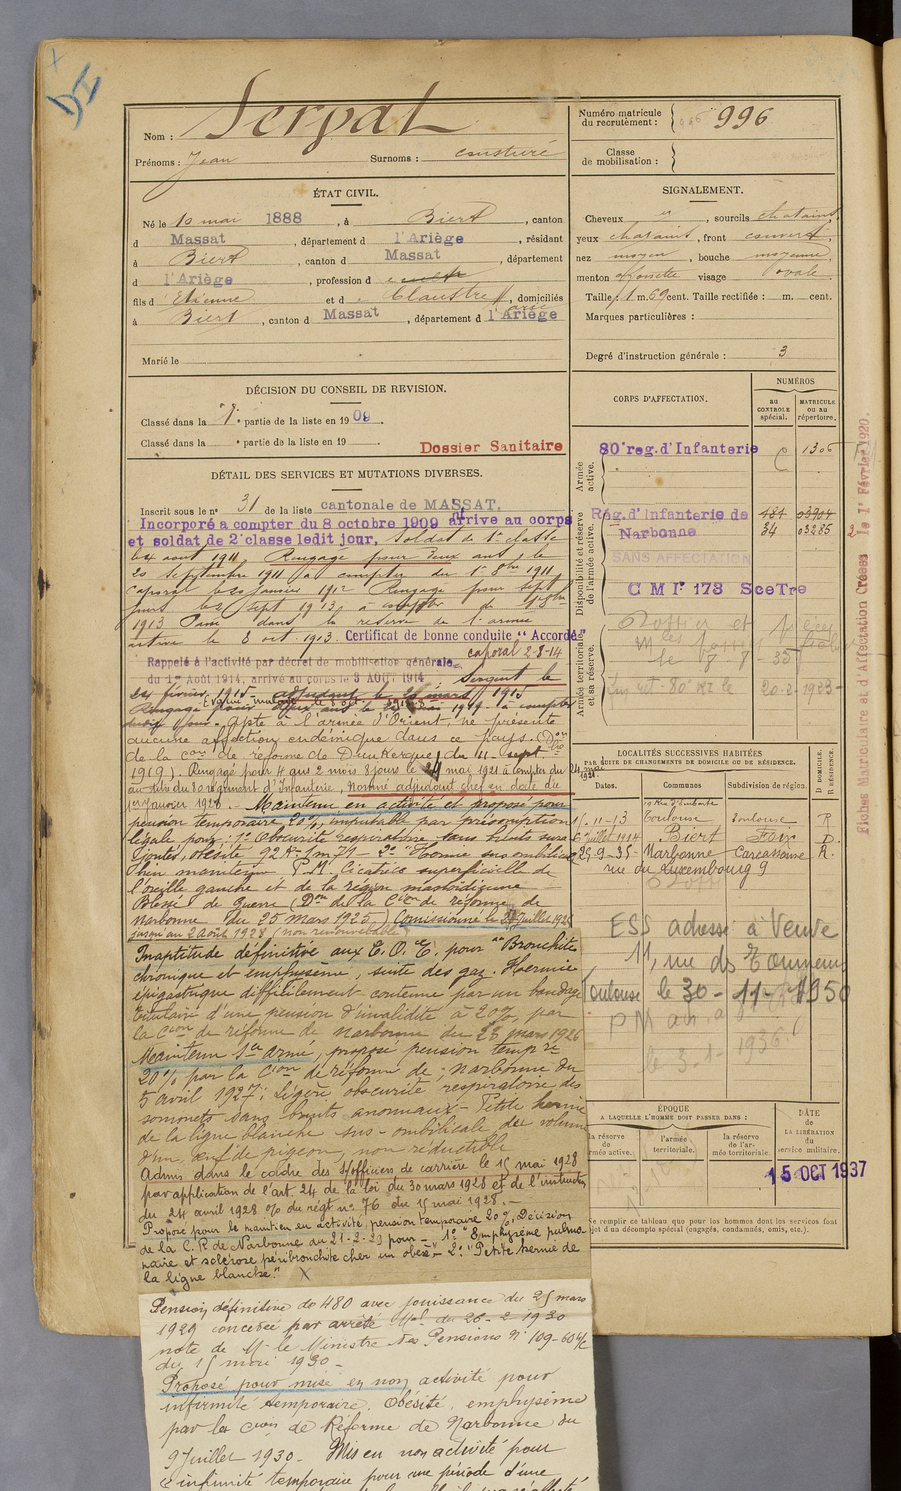 DI
Nom : Serpat
Numéro matricule du recrutement : 996
Prénoms : Jean Surnoms :
Classe de mobilisation :
ÉTAT CIVIL.
Né le 10 mai 1888, à Biert, canton
d Massat, département d l'Ariège, résidant
à Biert, canton d Massat, département
d l'Ariège, profession d
fils d Etienne et d Claustre, domiciliés
à Biert, canton d Massat, département d l'Ariège
Marié le
SIGNALEMENT.
Cheveux , sourcils chatains
yeux chatains, front couvert,
nez moyen, bouche moyenne,
menton visage ovale.
Taille : 1 m. 69 cent. Taille rectifiée : m. cent.
Marques particulières :
Degré d'instruction générale : 3
DÉCISION DU CONSEIL DE REVISION.
Classé dans la 1e partie de la liste en 19 09.
Classé dans la e partie de la liste en 19 .
Dossier Sanitaire
DÉTAIL DES SERVICES ET MUTATIONS DIVERSES.
Inscrit sous le n° 31 de la liste cantonale de MASSAT.
Incorporé a compter du 8 octobre 1909 arrive au corps
et soldat de 2e classe ledit jour. Soldat de 1e classe
le 4 aout 1911 Rengagé pour deux ans, le
20 septembre 1911 à compter du 1er 8bre 1911
Caporal le 20 janvier 1912 Rengagé pour sept
jours le 2 sept 1913 à compter du 1er 8bre
1913 Passé dans la réserve de l'armée
active le 8 oct. 1913. Certificat de bonne conduite "Accordé"
caporal 2-8-14
Rappelé à l'activité par décret de mobilisation générale
du 1er Août 1914, arrivé au corps le 3 AOUT 1914. Sergent le
24 février 1915 adjudant le mars 1915
Rengagé pour deux ans le 1919 à compter
dudit jour. Apte à l'armée d'Orient, ne présente
aucune affection endémique dans ce pays. (Don
de la Con de réforme de Dunkerque du 11 sept.
1919). Rengagé pour 4 ans 2 mois 8 jours le 24 mai 1921 à compter du 24 mai 1921
au titre du 80 régiment d'Infanterie. Nommé adjudant chef en date du
1er janvier 1928. Maintenu en activité et proposé pour
pension temporaire 20%, imputable par présomption
légale pour : 1° Obscurité respiratoire sans bruits sura-
joutés, obésité 92 K 2° "Hernie sus ombilicale
bien maintenue P.M. Cicatrice superficielle de
l'oreille gauche et de la région mastoïdienne
Blessé de guerre (Don de la Cion de réforme de
Narbonne du 25 mars 1925) Comissionné le 21 Juillet 1926
jusqu'au 2 août 1928 (non renouvelable)
Inaptitude définitive aux T.O.E. pour "Bronchite
chronique et emphysème, suite des gaz. Hernie
épigastrique difficilement contenue par un bandage
titulaire d'une pension d'invalidité à 20% par
la Cion de réforme de Narbonne du 23 mars 1926
Maintenu Ser armé, proposé pension temp re
20% par la Cion de réforme de : Narbonne du
5 avril 1927 : légère obscurité respiratoire des
sommets sans bruits anormaux - Petite hernie
de la ligne blanche sus-ombilicale du volume
d'un œuf de pigeon, non réductible
Admis dans le cadre des s/officiers de carrière le 15 mai 1928
par application de l'art. 24 de la loi du 30 mars 1928 et de l'instruction
du 24 avril 1928 O/ du régt n° 76 du 15 mai 1928.
Proposé pour le maintien en activité, pension temporaire 20% Décision
de la C.R. de Narbonne du 21-2-29 pour - 1° "Emphysème pulmo-
naire et sclérose péribronchite chez un obèse - 2° "Petite hernie de
la ligne blanche."
Pension définitive de 480 avec jouissance du 25 mars
1929 concédée par arrêté Mel du 26-2-1930
note de Mr le Ministre des Pensions N° 109-60
du 15 mai 1930 -
Proposé pour mise en non activité pour
infirmité temporaire. Obésité, emphysème
par la Cion de Réforme de Narbonne du
9 Juillet 1930 - Mis en non activité pour
infirmité temporaire pour une période d'une
CORPS D'AFFECTATION.
NUMÉROS
AU CONTROLE spécial.
MATRICULE ou au répertoire.
Armée active.
80e reg. d'Infanterie 1306
Disponibilité et réserve de l'armée active.
Rég. d'Infanterie de 484 03904
Narbonne 34 03285
SANS AFFECTATION
C M Ir 173 SceTre
Armée territoriale et sa réserve.
20-2-1923
Fiches Matriculaire et d'Affectation Créées le 1er Février 1920.
LOCALITÉS SUCCESSIVES HABITÉES
PAR SUITE DE CHANGEMENTS DE DOMICILE OU DE RÉSIDENCE.
Dates. Communes Subdivision de région. D DOMICILE. R RÉSIDENCE.
11-13 Toulouse Toulouse R
6 juillet 1914 Biert Foix D.
25-9-35 Narbonne Carcassonne R.
rue du Luxembourg 9
ESS adressé à Veuve
11, rue des Tourneurs
Toulouse le 30-11-1950
ÉPOQUE
A LAQUELLE L'HOMME DOIT PASSER DANS :
la réserve de l'armée active.
l'armée territoriale.
la réserve de l'armée territoriale.
DATE de LA LIBÉRATION du service militaire.
15 OCT 1937
Ne remplir ce tableau que pour les hommes dont les services font
objet d'un décompte spécial (engagés, condamnés, omis, etc.).